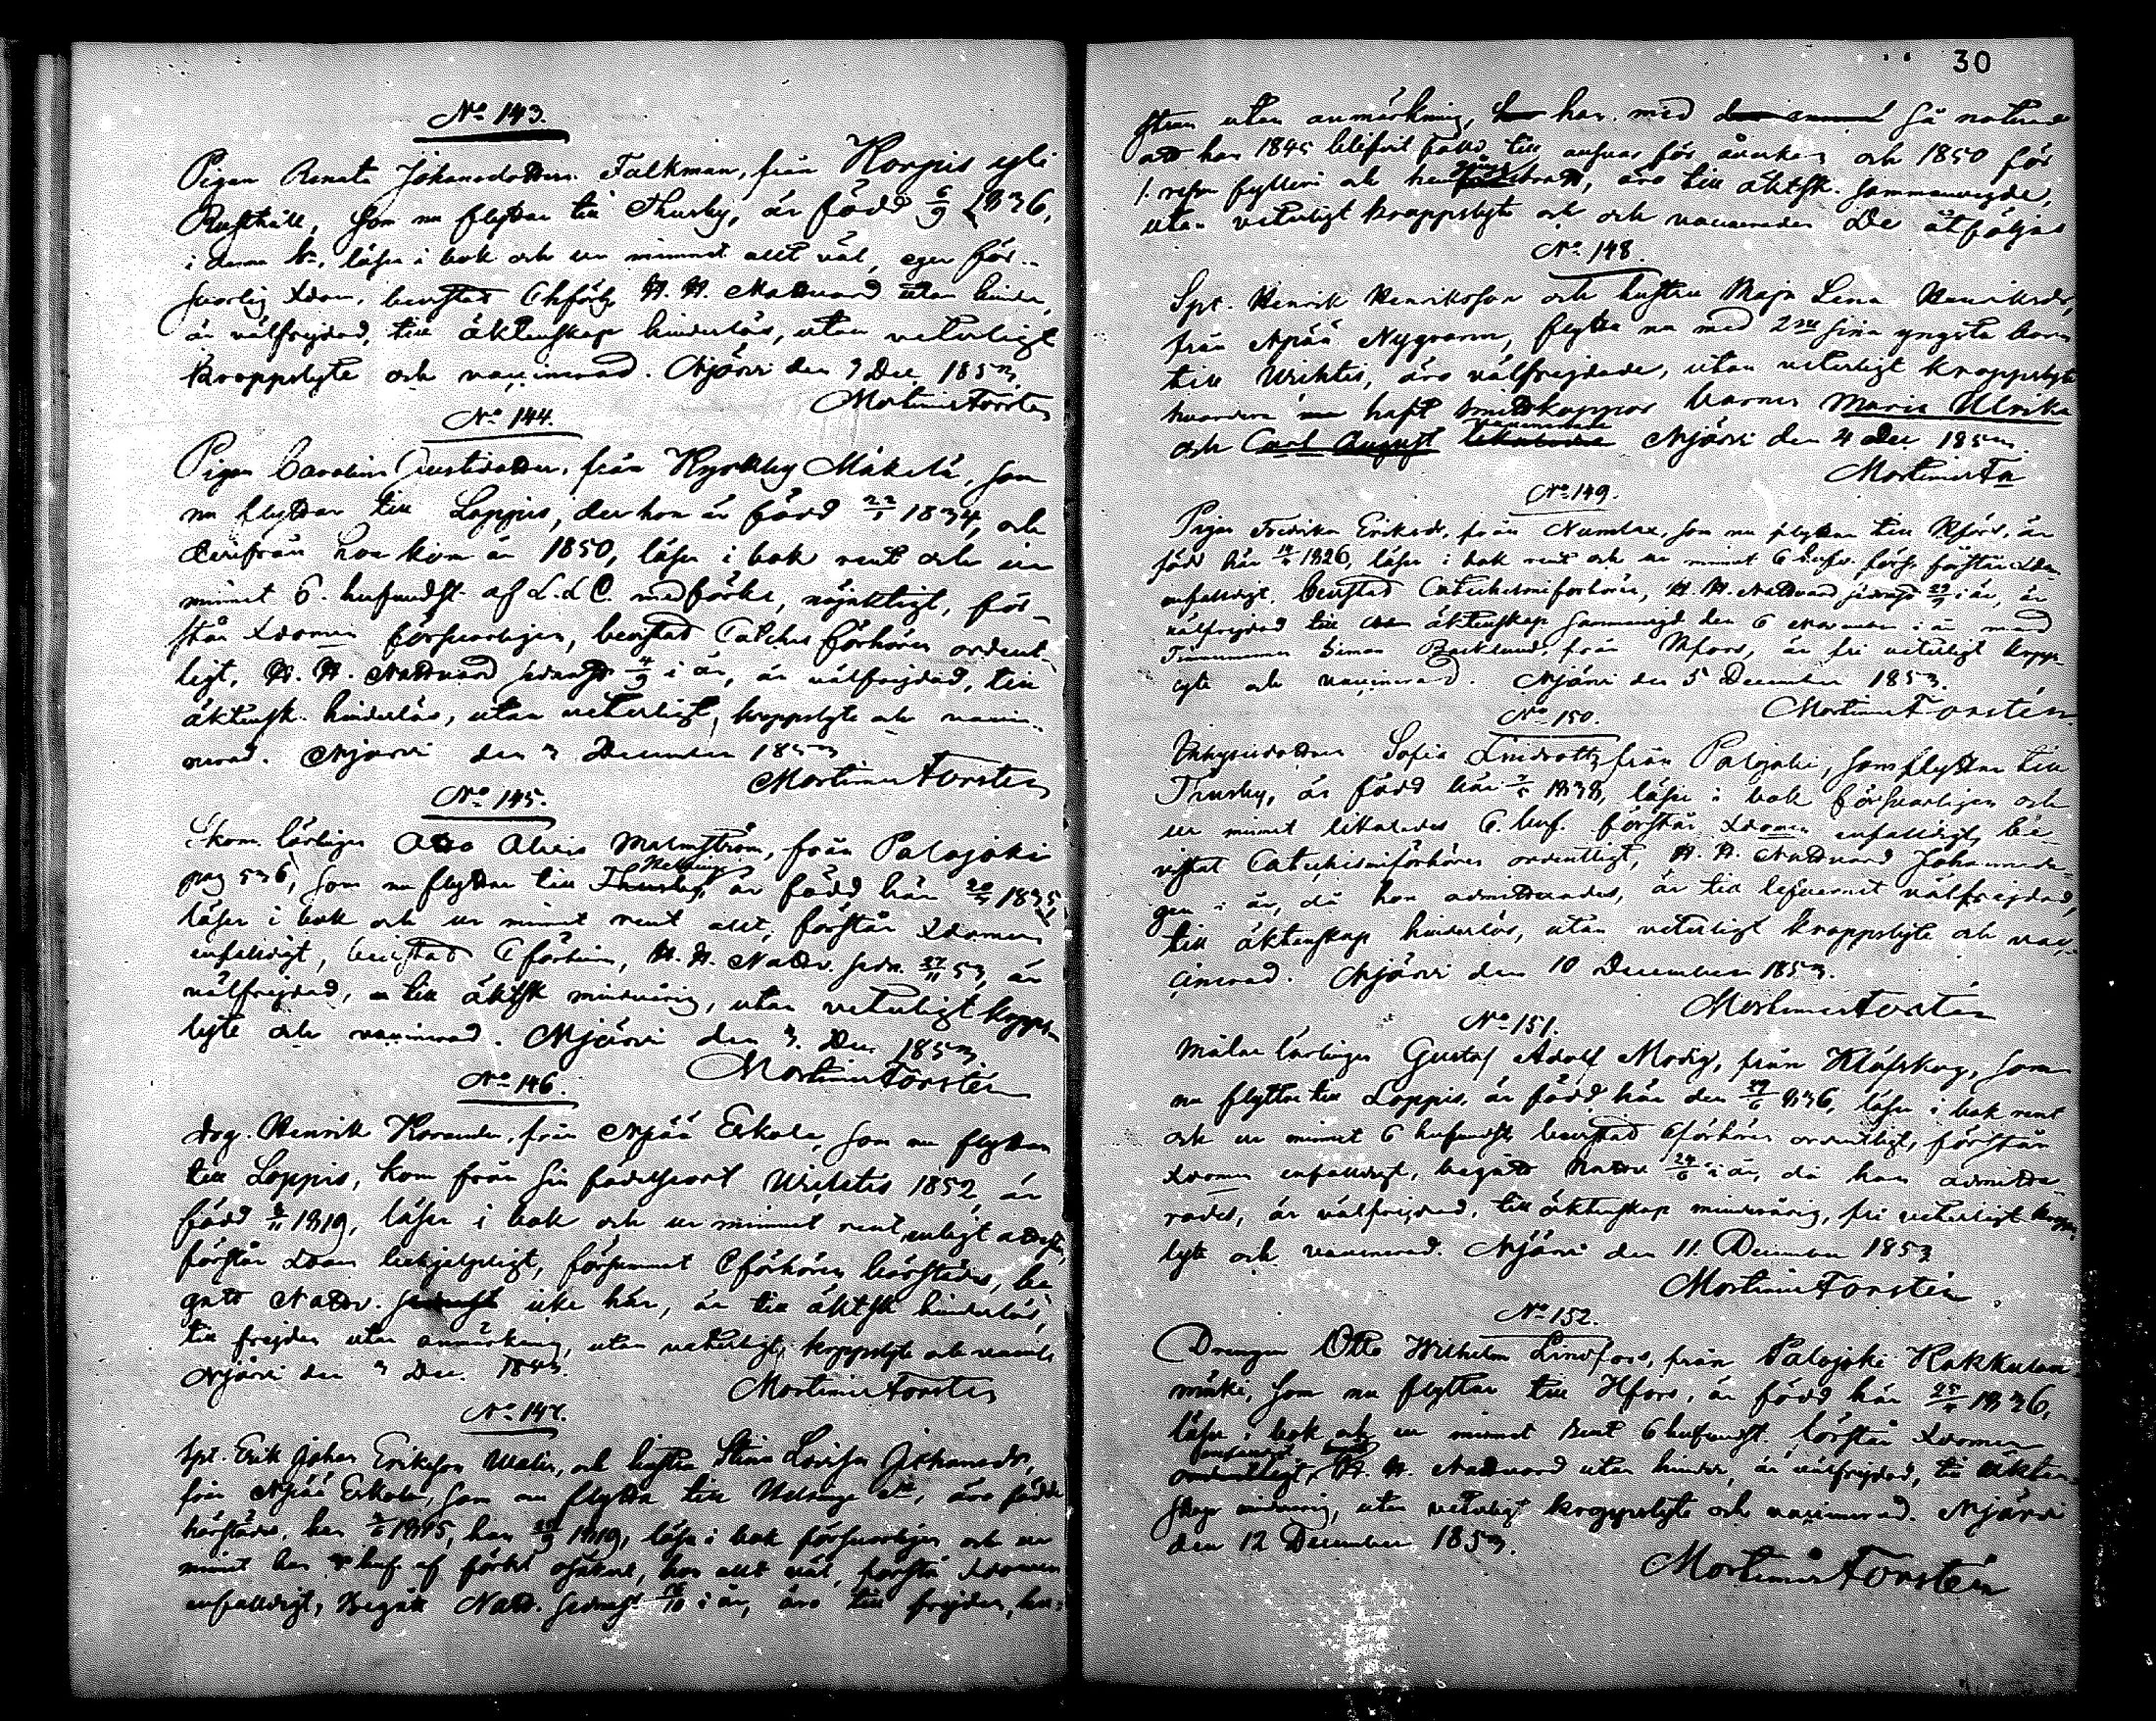 No 143.
Pigan Renata Johansdotter Falkman, från Korpis yli
Rusthåll, som nu flyttar till Thusby, är född 6/9 1836,
i denna Fn, läser i bok och ur minnet allt väl, eger för-
svarlig Xdom, bevistat Chförh, H. H. Nattvard utan hinder,
är välfrejdad, till äktenskap hinderlös, utan veterligt
kroppslyte och vaccinerad. Njärvi den 3 Dec 1853.
Mortimer Forstén
No 144.
Pigan Carolina Gustisdotter, från Kyrkby Mäkelä, som
nu flyttar till Loppis, der hon är född 22/1 1834, och
derifrån hon kom år 1850, läser i bok rent och ur
minnet 6. hufvudst. af L. C. med förkl, nöjaktigt, för-
står Xdomen försvarligen, bevistat Catches förhören ordent-
ligt, H. H. Nattvard sednast 4/9 i år, är välfrejdad, till
äktensk. hinderlös, utan veterligt, kroppslyte och vacci-
nerad. Njärvi den 3 December 1853
Mortimer Forstén
No 145.
Skom. lärlingen Otto Alexis Malmström, från Palojoki
pag 536, som nu flyttar till Thusby, Helsinge är född här 20/5 1835,
läser i bok och ur minnet rent allt, förstår Xdomen
enfaldigt, bevistat Cförhören, H. H. Nattv. sedn. 27/11 53, är
välfrejdad, till äktsk minderårig, utan veterligt kropps-
lyte och vaccinerad. Njärvi den 3. Dec. 1853.
Mortimer Forstén
No 146.
Drg. Henrik Korander, från Njää Erkola, som nu flyttar
till Loppis, kom från sin födelseort Wichtis 1852, är
född 8/11 1819, läser i bok och ur minnet rent, enligt attest,
förstår Xdomen behjelpligt, försummat Cförhören härstädes, be-
gått Nattv. sednast icke här, är till äktsk hinderlös,
till frejden utan anmärkning, utan veterligt, kroppslyte och vaccin.
Njärvi den 3 Dec. 1853.
Mortimer Forstén
No 147.
Spt. Erik Johan Eriksson Walin, och hustru Stina Lovisa Johansdr,
från Njää Erkola, som nu flytta till Helsinge, äro födde
härstädes, han 1815, hon 1819, läsa i bok försvarligen och ur
minnet han huf. af förkl osäkert, hon allt väl, förstå Xdomen
enfaldigt, Begått Nattv. sednast 16/10 i år, äro till frejden, hu-
30
strun utan anmärkning, han med så naturad
att han 1845 blifvit fälld till ansvar för åverkan och 1850 för
1. resan fylleri och, äro till äktsk. sammanvigde,
utan veterligt kroppslyte och och vaccinerade. De åtföljas
No 148.
Spt. Henrik Henriksson och hustru Maja Lena Henriksdr,
från Njää Nygrann, flytta nu med 2ne sina yngsta barn
till Wichtis, äro välfrejdade, utan veterligt kroppslyte
hvardera haft smittkoppor barnen Maria Ulrika
och Carl August vaccinerade Njärvi den 4 Dec 1853
Mortimer Fn
No 149.
Pigan Fredrika Eriksdr, från Numlax, som nu flyttar till Hfors, är
född här 1826, läser i bok rent och ur minnet 6 hufv. förstår Xdom
enfaldigt, bevistat Catechismiförhören, H. H. Nattvard sednast i år, är
välfrejdad till äktenskap sammanvigd den 6 November i år med
Timmerman Simon Backlund, från Hfors, är fri veterligt kropps-
lyte och vaccinerad. Njärvi den 5 December 1853.
Mortimer Forstén.
No 150.
Inhysesdottren Sofia Lindroth, från Palojoki, som flyttar till
Thusby, är född här 1838, läser i bok försvarligen och
ur minnet likaledes 6. huf. förstår Xdomen enfaldigt, be-
vistat Catechismiförhören ordentligt, H. H. Nattvard Johannedа-
gen i år, då hon admitterades, är till lefvernet välfrejdad,
till äktenskap hinderlös, utan veterligt kroppslyte och vac-
cinerad. Njärvi den 10 December 1853.
Mortimer Forstén
No 151.
Målare lärlingen Gustaf Adolf Modig, från Klöfskog, som
nu flyttar till Loppis, är född här den 29/6 1836, läser i bok rent
och ur minnet 6 hufvudst, bevistat Cförhören ordentligt, förstår
Xdomen enfaldigt, begått Nattv 24/6 i år, då han admitte-
rades, är välfrejdad, till äktenskap minderårig, fri veterligt kropps-
lyte och vaccinerad. Njärvi den 11. December 1853
Mortimer Forstén
No 152.
Drengen Otto Wilhelm Lindfors, från Palojoki Kakkulan-
mäki, som nu flyttar till Hfors, är född här 25/5 1836,
läser i bok och ur minnet rent 6 hufvudst. förstår Xdomen
enfaldigt ordentligt, H. H. Nattvard utan hinder, är välfrejdad, till äkten-
skap minderårig, utan veterligt kroppslyte och vaccinerad. Njärvi
den 12 December 1853.
Mortimer Forstén